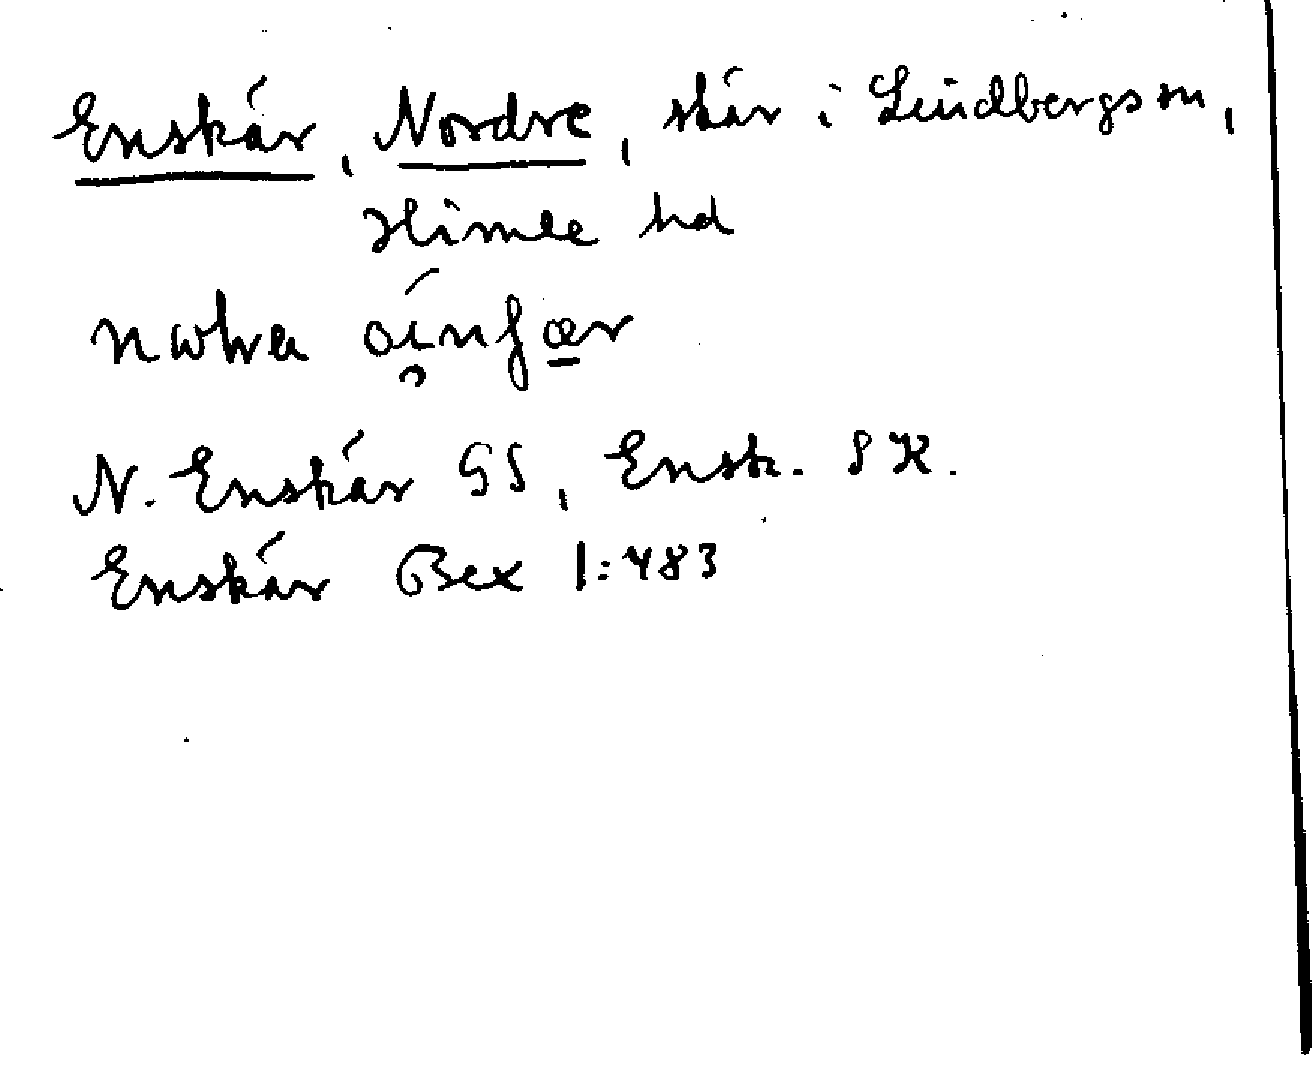 Enskär, Nordre, skär i Lindbergs sn,
Himle hd
N. Enskär GS, Ensk. SK.
Enskär Bex 1:483